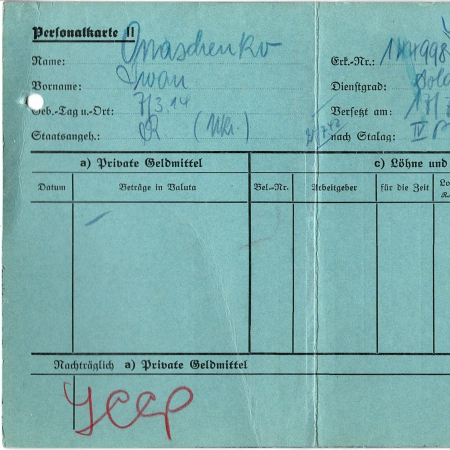 Personalkarte II
Name: Gnaschenko Erk.-Nr.:
Vorname: Iwan Dienstgrad: Sold
Geb.-Tag u.-Ort: 7/3.14 Versetzt am: 17/7
Staatsangeh.: SR (Ukr.) nach Stalag: IV
a) Private Geldmittel c) Löhne und
Datum Beträge in Valuta Bel.-Nr. Arbeitgeber für die Zeit Lo
Nachträglich a) Private Geldmittel
УССР